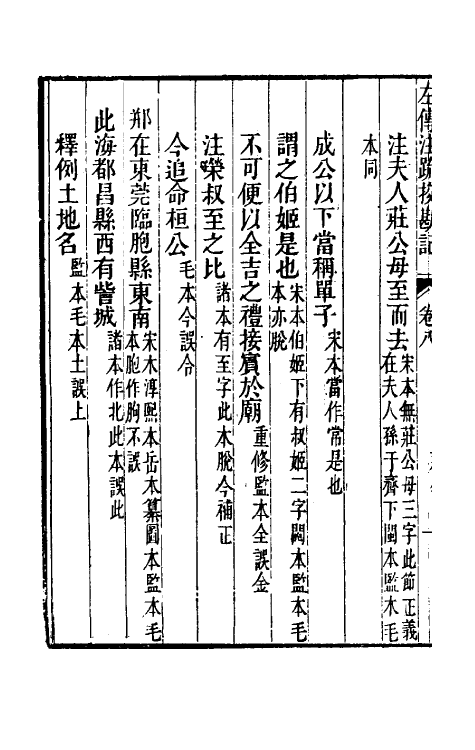 左傳注疏校勘記 卷八
注夫人莊公母至而去宋本無莊公母三字此節正義在夫人孫于齊下閩本監本毛
本同
成公以下當稱單子宋本當作常是也
謂之伯姬是也宋本伯姬下有叔姬二字閩本監本毛本亦脫
不可便以全吉之禮接賓於廟重修監本全誤金
注榮叔至之比諸本有至字此本脫今補正
今追命桓公毛本今誤令
郱在東莞臨朐縣東南宋本淳熙本岳本纂圖本監本毛本胊作朐不誤
此海都昌縣西有訾城諸本作北此本誤此
釋例土地名監本毛本土誤上